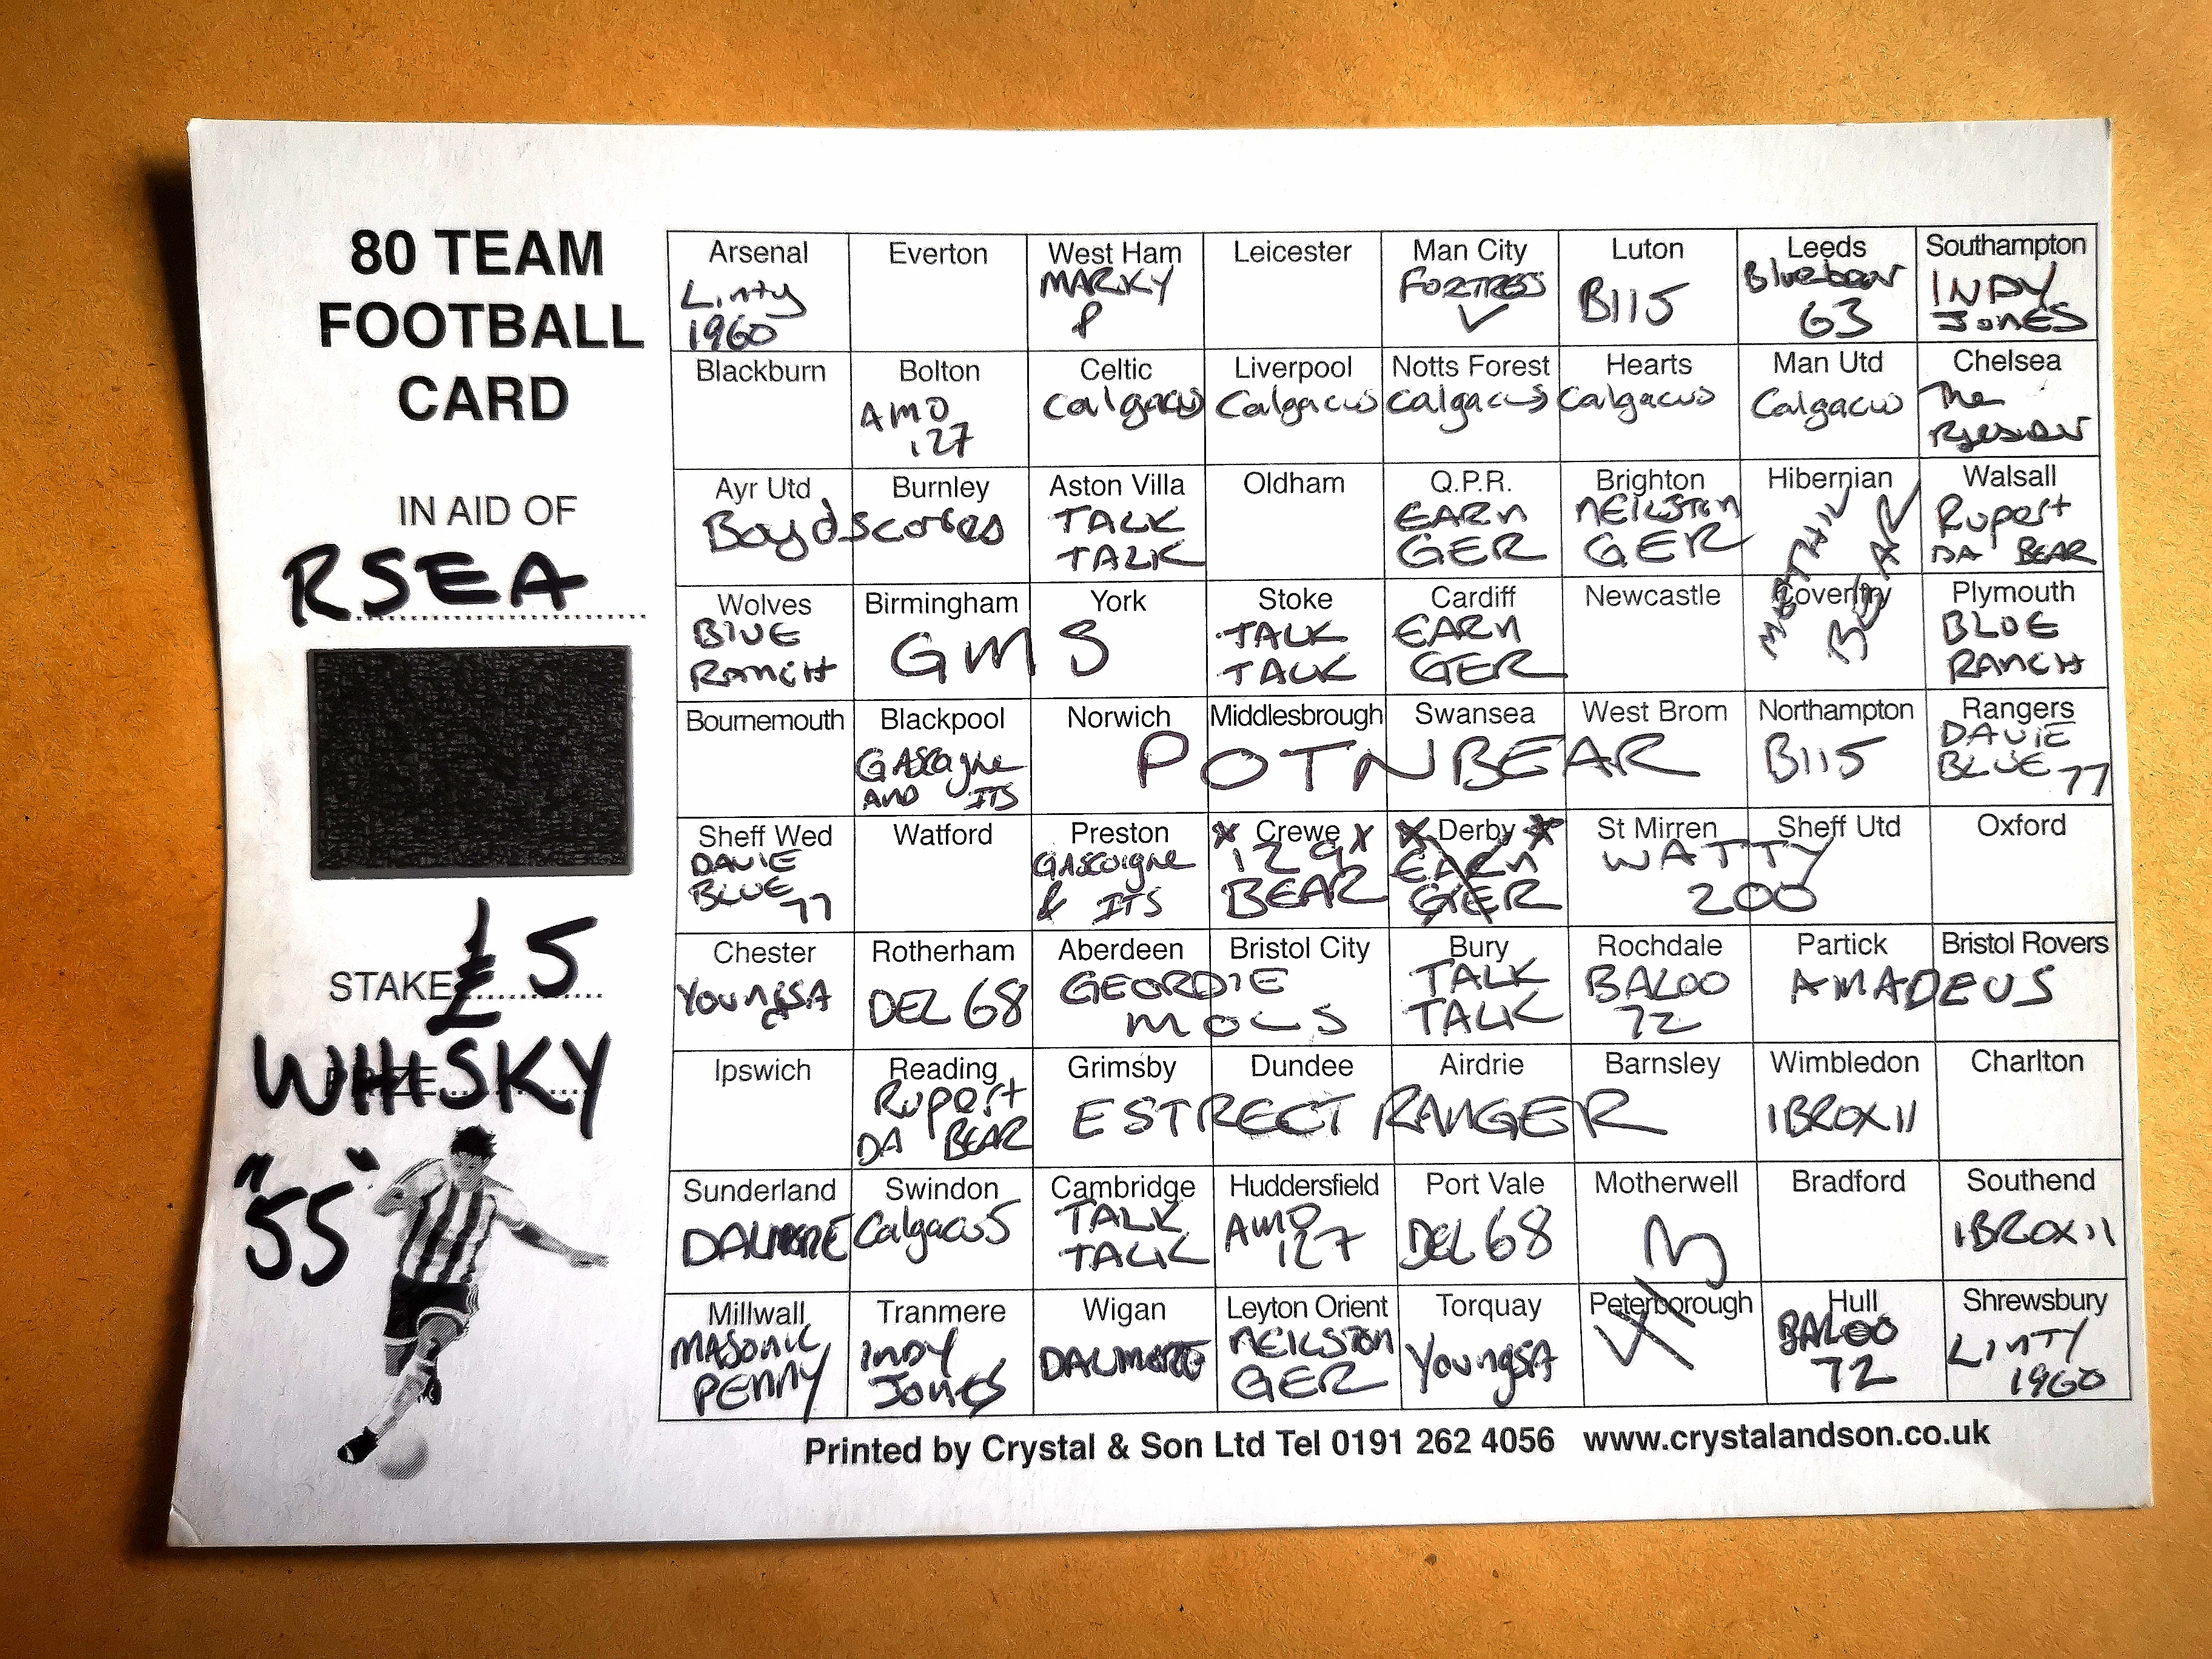 80 TEAM
FOOTBALL
CARD
IN AID OF
RSEA
STAKE £5
WHISKY
"55"
Arsenal Everton West Ham Leicester Man City Luton Leeds Southampton
Linty MARKY FORTRESS B115 Bluebear INDY
1960 P 63 JONES
Blackburn Bolton Celtic Liverpool Notts Forest Hearts Man Utd Chelsea
AMO Calgacus Calgacus Calgacus Calgacus Calgacus The
127
Ayr Utd Burnley Aston Villa Oldham Q.P.R. Brighton Hibernian Walsall
Boydscores TALK EARN NEILSTON Rupert
TALK GER GER BEAR DA BEAR
Wolves Birmingham York Stoke Cardiff Newcastle Coventry Plymouth
BLUE GMS TALK EARN BLUE
RANCH TALK GER RANCH
Bournemouth Blackpool Norwich Middlesbrough Swansea West Brom Northampton Rangers
GASCOigne POTNBEAR B115 DAVIE
AND ITS BLUE 77
Sheff Wed Watford Preston Crewe Derby St Mirren Sheff Utd Oxford
DAVIE GASCOigne EARN WATTY
BLUE 77 & ITS BEAR GER 200
Chester Rotherham Aberdeen Bristol City Bury Rochdale Partick Bristol Rovers
YoungSA DEL 68 GEORDIE TALK BALOO AMADEUS
MOLS TALK 72
Ipswich Reading Grimsby Dundee Airdrie Barnsley Wimbledon Charlton
Rupert ESTRECT RANGER IBROX11
DA BEAR
Sunderland Swindon Cambridge Huddersfield Port Vale Motherwell Bradford Southend
DALMORE CalgacuS TALK AMO DEL 68 IBROX11
TALK 127
Millwall Tranmere Wigan Leyton Orient Torquay Peterborough Hull Shrewsbury
MASONIC INDY DALMORE NEILSTON YoungSA BALOO LINTY
PENNY JONES GER 72 1960
Printed by Crystal & Son Ltd Tel 0191 262 4056 www.crystalandson.co.uk